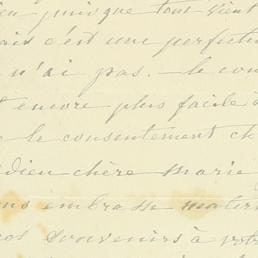 puisque tout vient
ais c'est une perfecti
n'ai pas. le con
t encore plus facile à
le consentement ch
dieu chère Marie
ous embrasse mater
souvenirs à votr